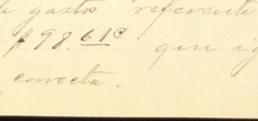 gastos referente
$98.61c que ig
correcta.